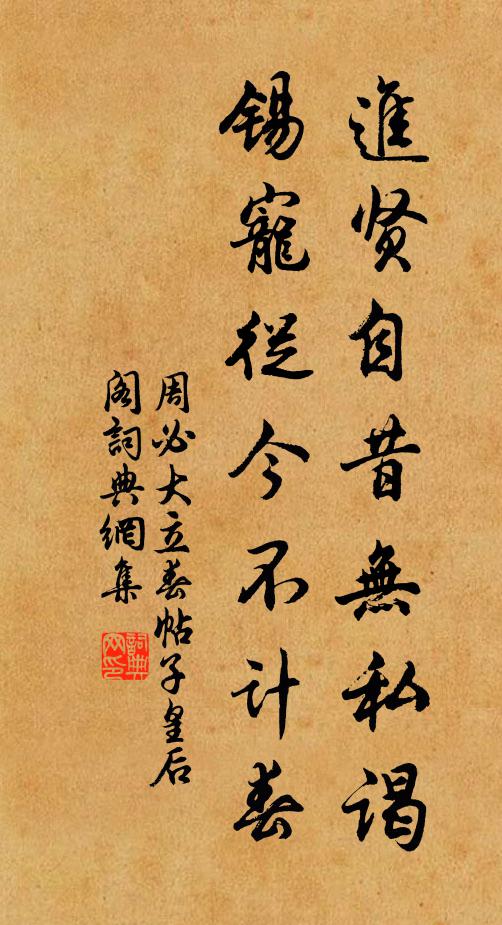 進贤自昔無私謁
錫寵從今不计春
周必大立春帖子皇后
阁詞典網集
詞典网印